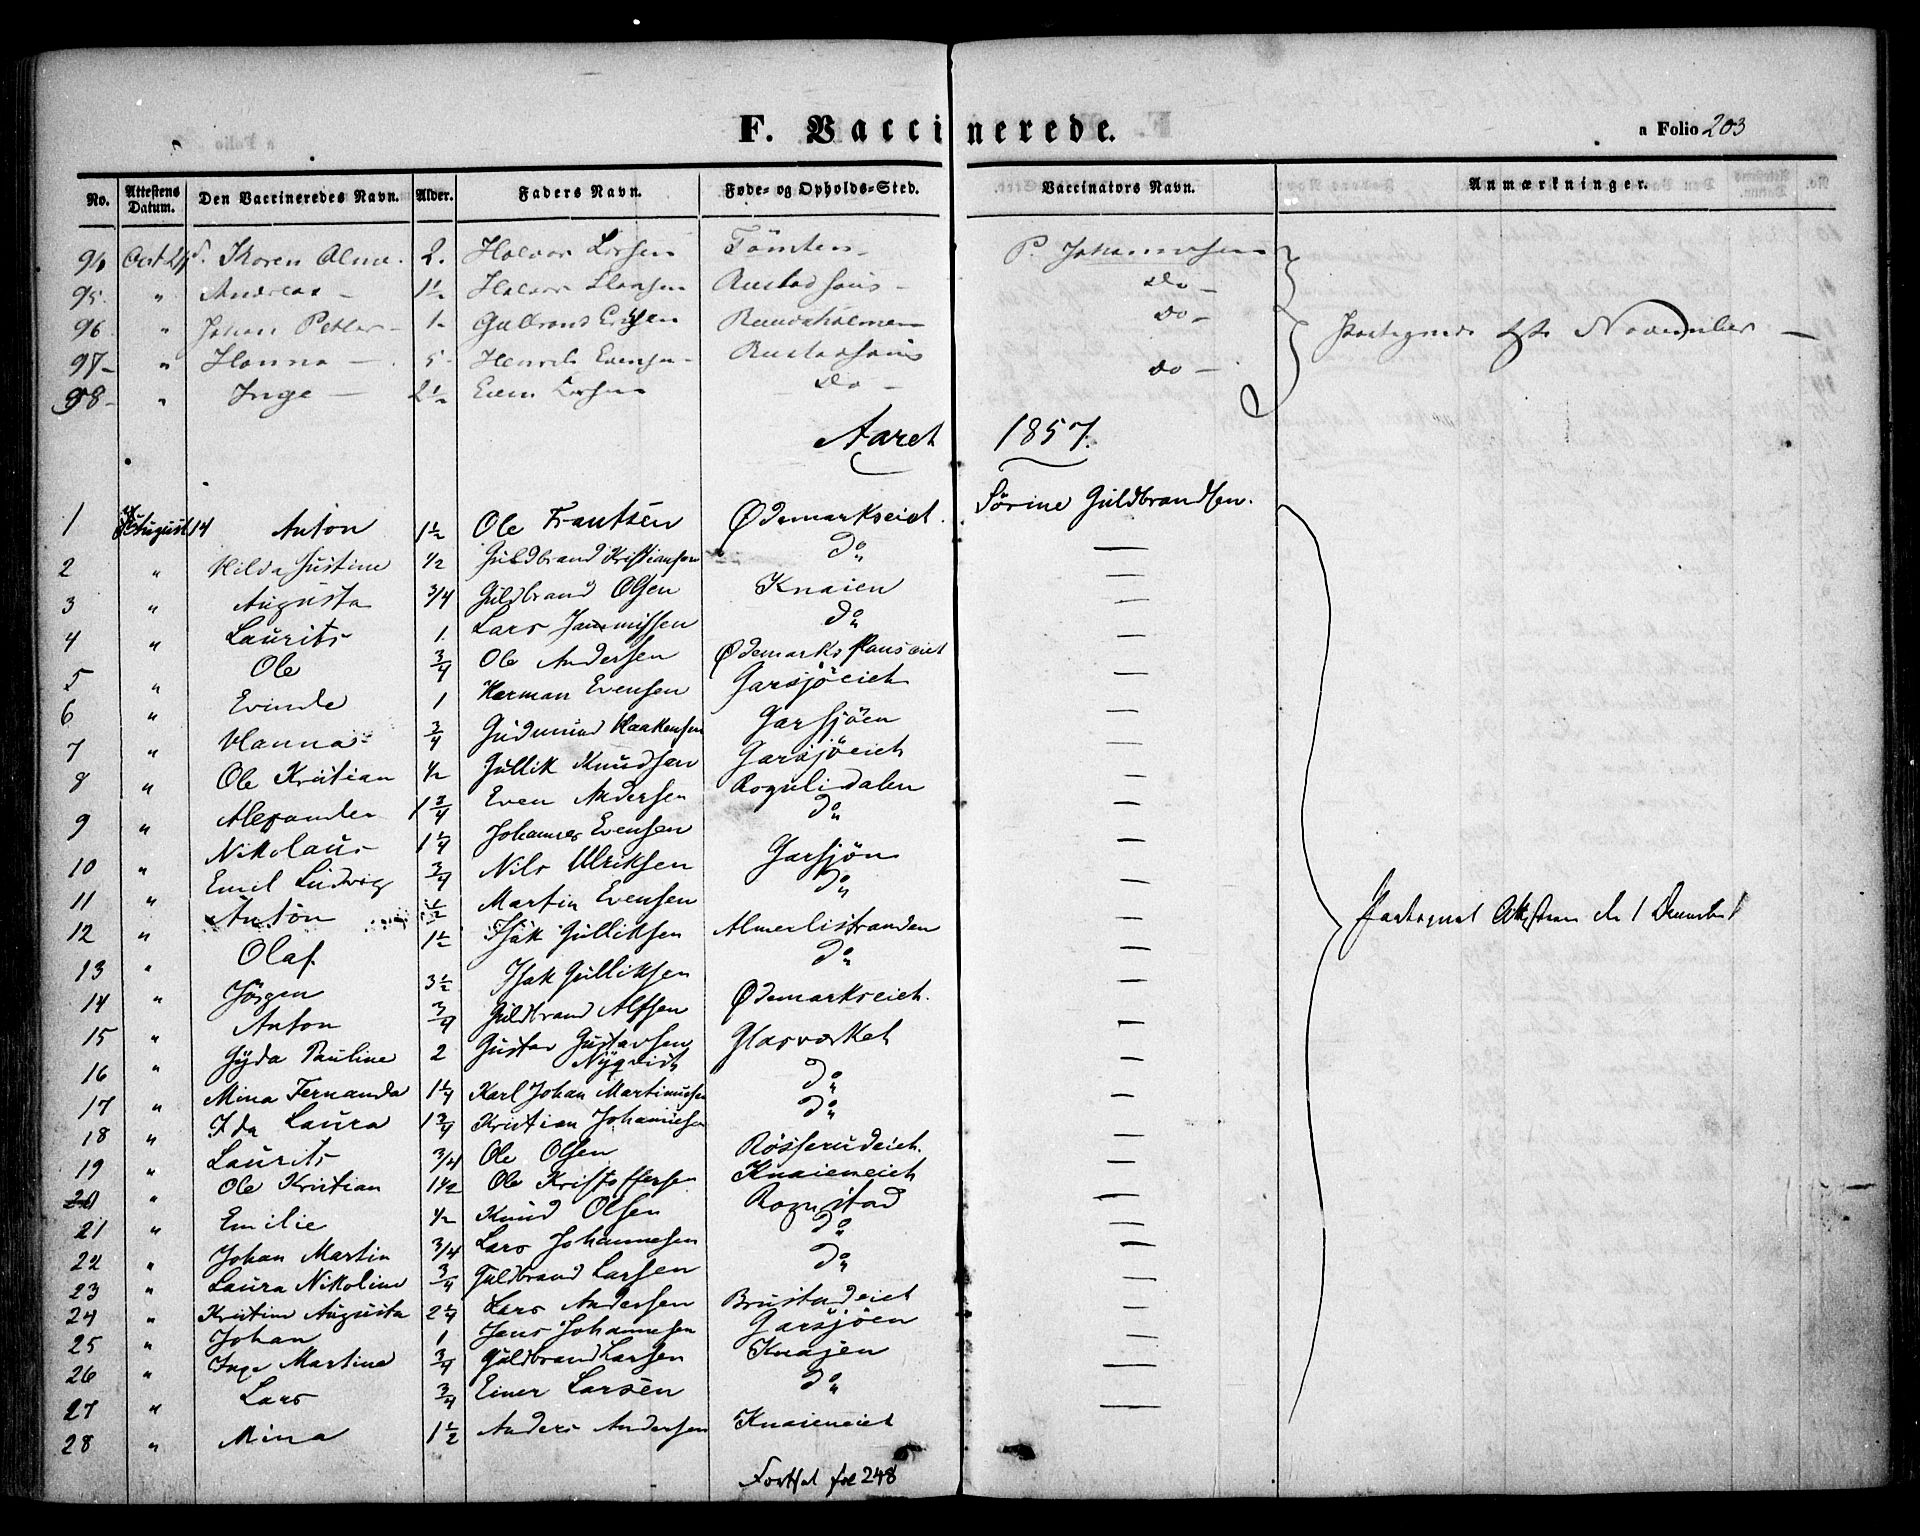 F. Vaccinerede.
a Folio 203
No. Attestens Datum. Den Vaccineredes Navn. Alder. Faders Navn. Føde- og Opholds-Sted. Vaccinators Navn. Anmærkninger.
Thoren 2. Halvor Larsen Tömten P. Johannesen
95. " Andreas 1½ Halvor Hansen Rustadhaus Do
96 " Johan Petter 1 Gulbrand Do
97 " Hanna 5 Henrik Evensen Rustadhaus
98 " Inge 2½ Even Larsen Do Do
November
Aaret 1857.
1 August 14 Anton 1½ Ole Frantsen Ødemarkseiet. Sörine Guldbrandsen.
2 " Hilda Justine ½ Guldbrand Kristiansen Do —
3 " Augusta 3/4 Guldbrand Olsen Knaien —
4 " Laurits 1. Lars Do —
5 " Ole 3/4 Ole Andersen Ødemarks —
6 " Evinde 1 Herman Evensen Garsjöeiet —
7 " Hanna 3/4 Gudmund Haakensen Garsjöen —
8 " Ole Kristian ½ Gullik Knudsen Garsjöeiet —
9 " Alexander 1¾ Even Andersen Rogulidalen —
10 " Nikolaus 1¼ Johannes Evensen Do —
11 " Emil Ludvig 3/4 Nils Ulriksen Garsjön —
12 " Anton ½ Martin Evensen Do —
13 " Olaf 1½ Isak Gulliksen Almerlistranden —
14 " Jörgen 3½ Isak Gulliksen Do —
15 " Anton 3/4 Guldbrand Alfsen Ødemarkseiet. —
16 " Gyda Pauline 2 Gustav Gustavsen Nyqvist Glasværket —
17 " Mina Fernanda 1¼ Karl Johan Martinussen Do —
18 " Ida Laura 1¾ Kristian Johannesen Do —
19 " Laurits 3/4 Ole Olsen Rösserudeiet. —
20 " Ole Kristian 1½ Ole Kristoffersen Knaieneiet —
21 " Emilie ½ Knud Olsen Rognstad —
22 " Johan Martin 3/4 Lars Johannesen Do —
23 " Laura Nikoline 3/4 Guldbrand Larsen Do —
24 " Kristine Augusta 2¼ Lars Andersen Brustadeiet —
25 " Johan 1 Jens Johannesen Garsjöen —
26 " Inge Martine 3/4 Guldbrand Larsen Knajen —
27 " Lars 3/4 Einer Larsen Do —
28 " Mina 1½ Anders Andersen Knaieneiet —
Fortsat fol 248